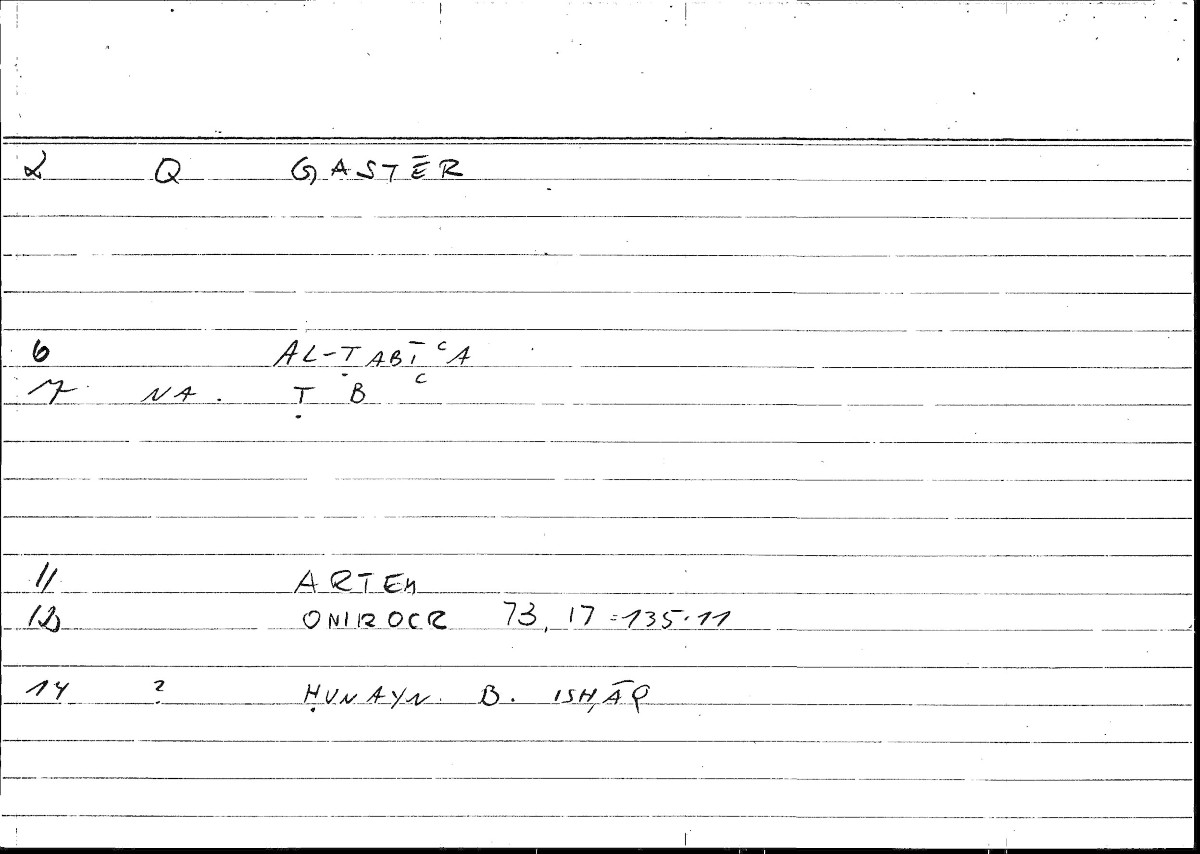 2 Q GASTĒR
6 AL-ṬABĪʿA
7 NA. Ṭ B ʿ
11 ARTEM
12 ONIROCR 73, 17 = 135.11
14 ? ḤUNAYN. B. ISḤĀQ